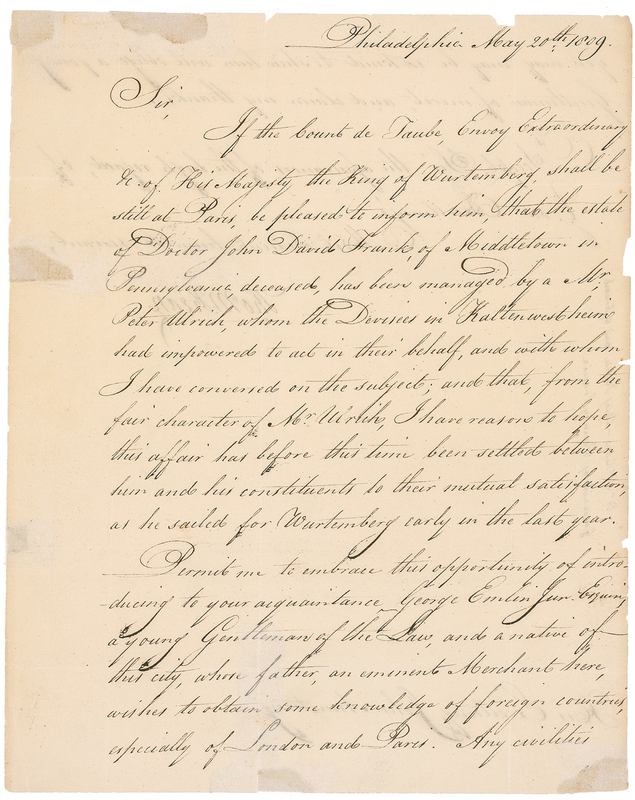 Philadelphia May 20th. 1809.
Sir,
If the Count de Taube, Envoy Extraordinary
&c. of His Majesty the King of Wurtemberg, shall be
still at Paris, be pleased to inform him, that the estate
of Doctor John David Franck, of Middletown in
Pennsylvania deceased, has been managed by a Mr.
Peter Ulrich, whom the Devisees in Kaltenwestheim
had impowered to act in their behalf, and with whom
I have conversed on the subject; and that, from the
fair character of Mr. Ulrich, I have reason to hope,
this affair has before this time been settled between
him and his constituents to their mutual satisfaction,
as he sailed for Wurtemberg early in the last year.
Permit me to embrace this opportunity of intro-
ducing to your acquaintance George Emlin Jun.
a young Gentleman of the Law, and a native of
this city, whose father, an eminent Merchant here,
wishes to obtain some knowledge of foreign countries,
especially of London and Paris. Any civilities